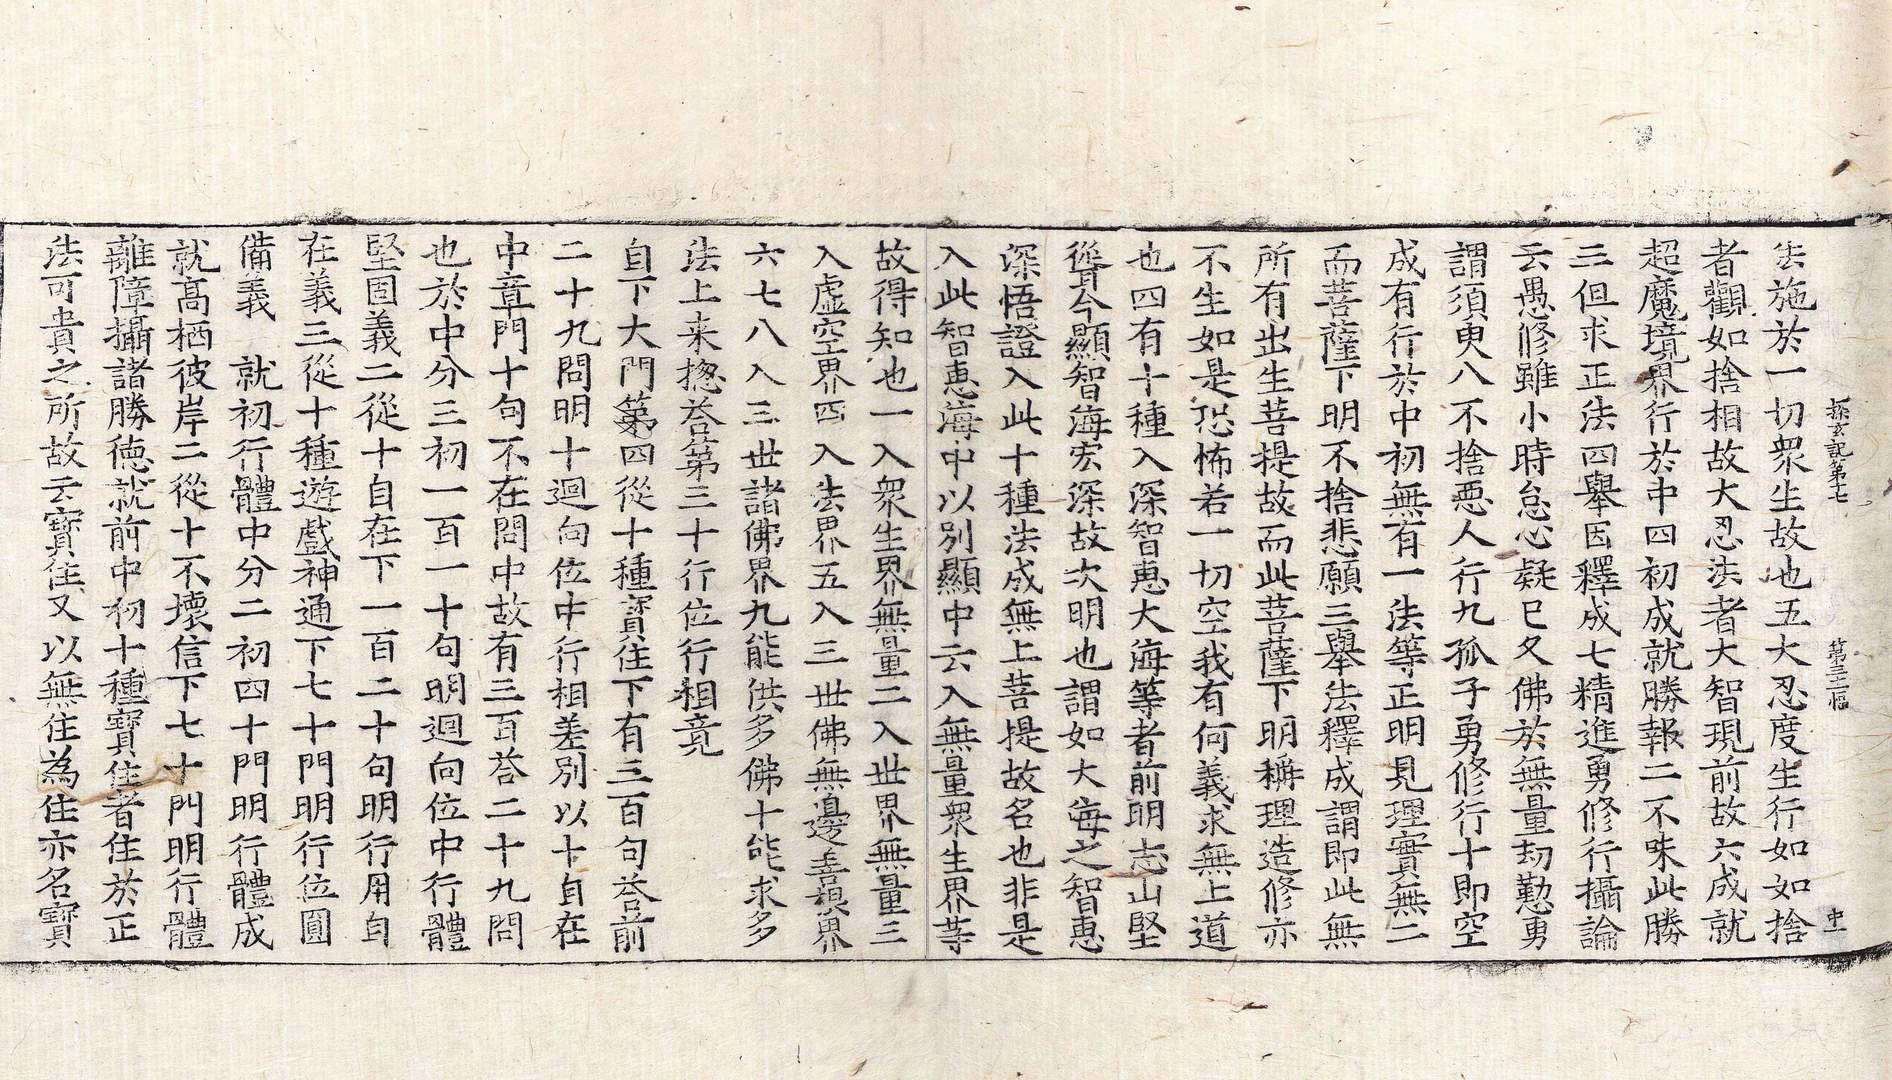 探玄記第十七　第三十二幅　史
法施於一切衆生故也五大忍度生行如如捨
者觀如捨相故大忍法者大智現前故六成就
超魔境界行於中四初成就勝報二不味此勝
三但求正法四舉因釋成七精進勇修行攝論
云愚修雖小時怠心疑已久佛於無量劫懃勇
謂須臾八不捨惡人行九孤子勇修行十即空
成有行於中初無有一法等正明見理實無二
而菩薩下明不捨悲願三舉法釋成謂即此無
所有出生菩提故而此菩薩下明稱理造修亦
不生如是恐怖若一切空我有何義求無上道
也四有十種入深智惠大海等者前明志山堅
聳今顯智海宏深故次明也謂如大海之智惠
深悟證入此十種法成無上菩提故名也非是
入此智惠海中以別顯中云入無量衆生界等
故得知也一入衆生界無量二入世界無量三
入虛空界四入法界五入三世佛無邊善根界
六七八入三世諸佛界九能供多佛十能求多
法上来揔荅第三十行位行相竟
自下大門第四從十種寶住下有三百句荅前
二十九問明十迴向位中行相差別以十自在
中章門十句不在問中故有三百荅二十九問
也於中分三初一百一十句明迴向位中行體
堅固義二從十自在下一百二十句明行用自
在義三從十種遊戲神通下七十門明行位圓
備義　就初行體中分二初四十門明行體成
就高栖彼岸二從十不壞信下七十門明行體
離障攝諸勝徳就前中初十種寶住者住於正
法可貴之所故云寶住又以無住為住亦名寶